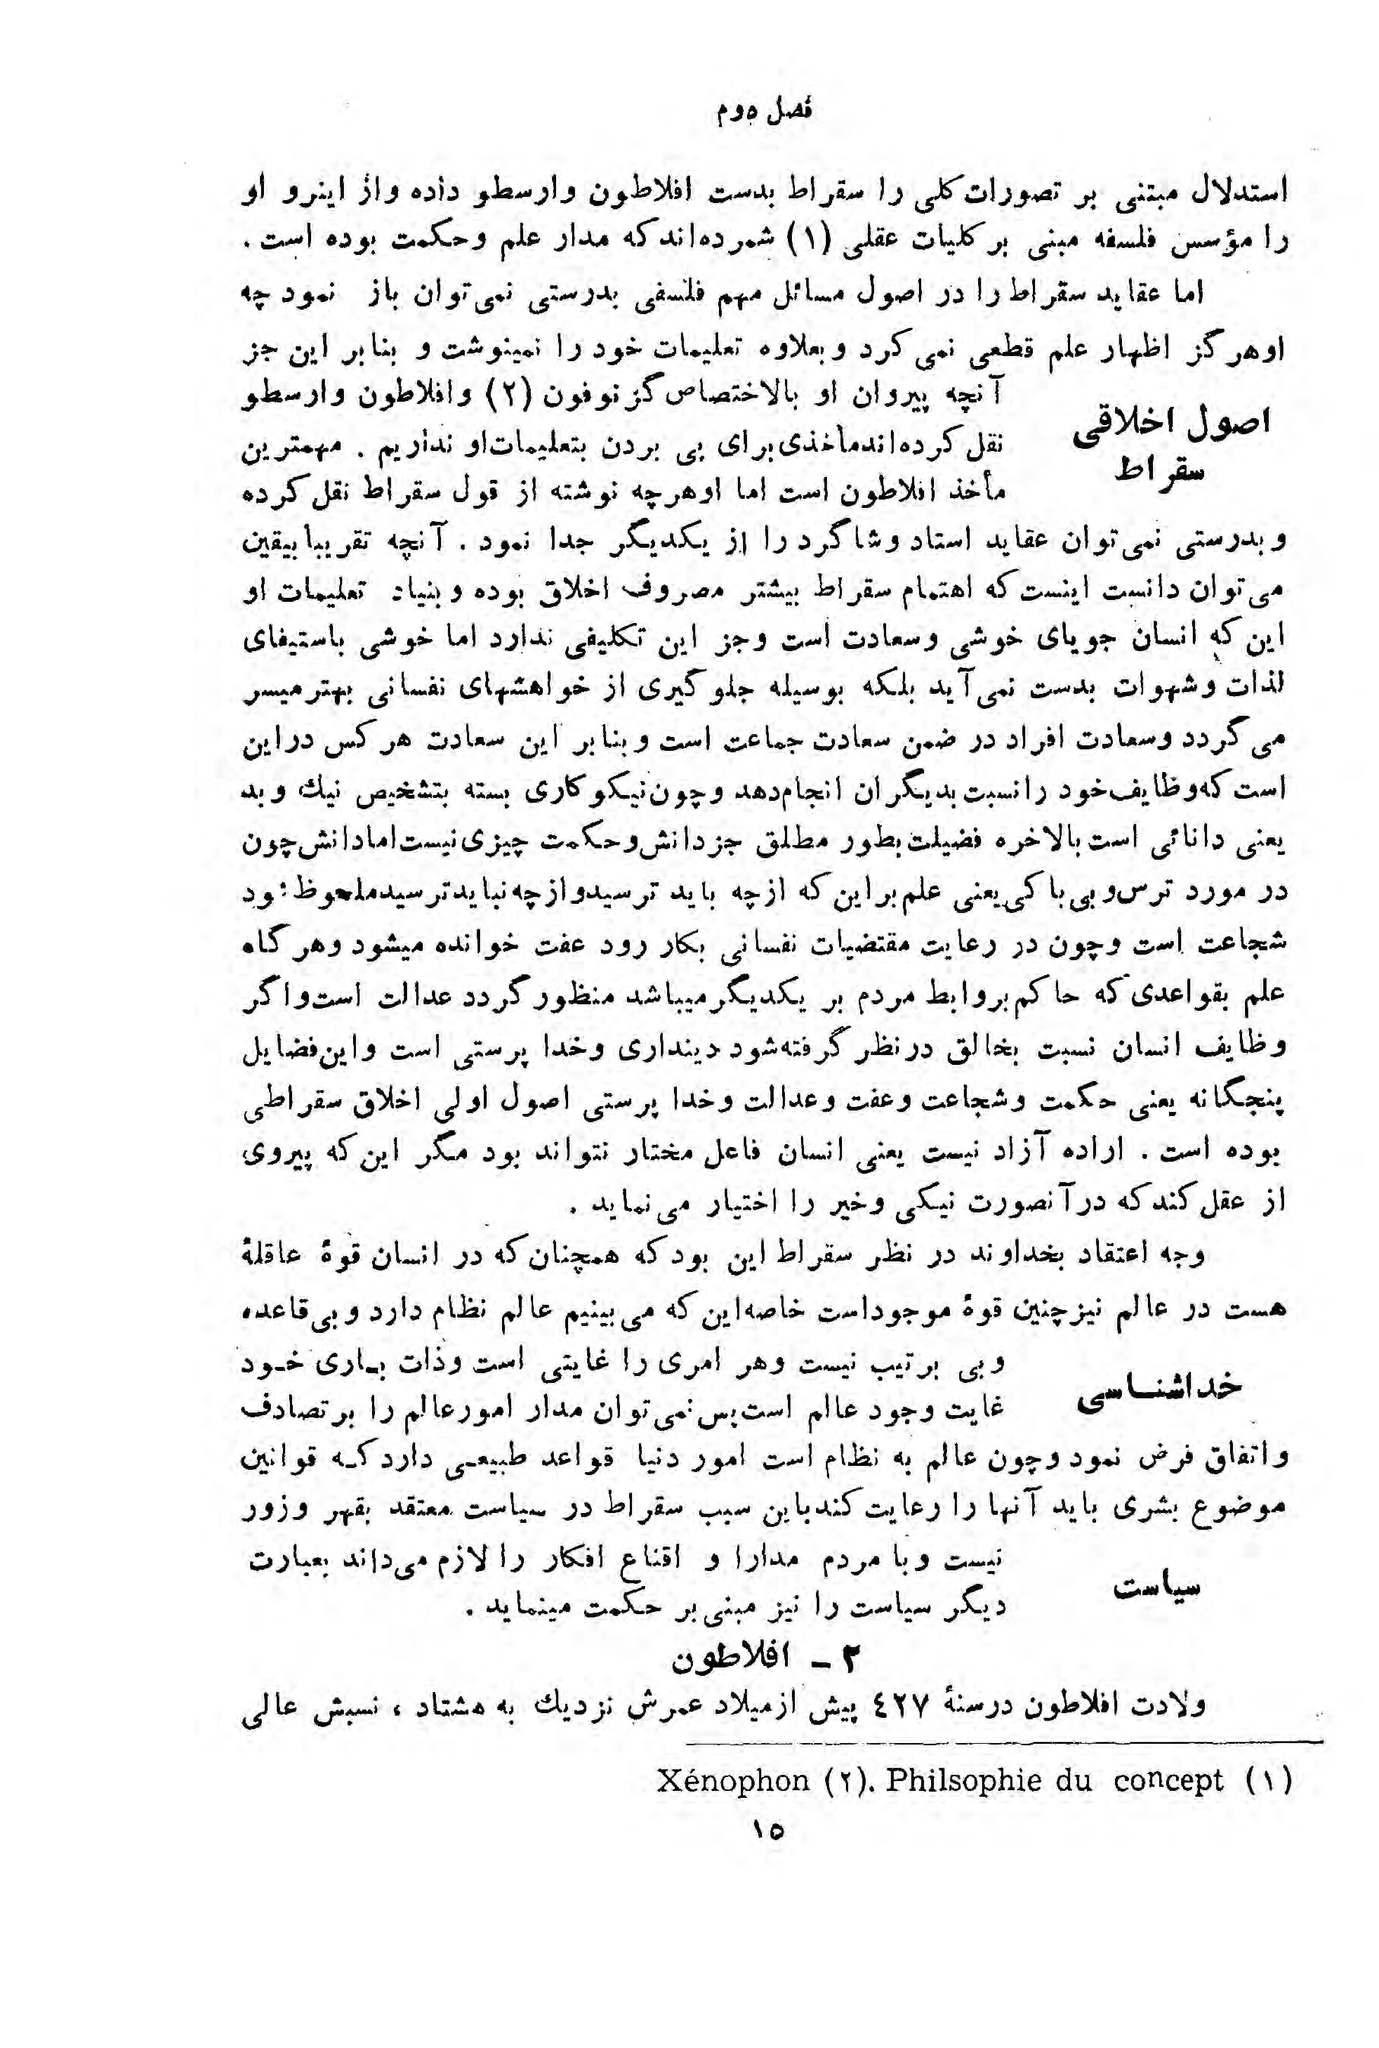 فصل دوم
استدلال مبتنی بر تصورات کلی را سقراط بدست افلاطون وارسطو داده واز اینرو او
را مؤسس فلسفه مبنی بر کلیات عقلی (۱) شمرده‌اند که مدار علم وحکمت بوده است.
اما عقاید سقراط را در اصول مسائل مهم فلسفی بدرستی نمی‌توان باز نمود چه
اوهرگز اظهار علم قطعی نمی‌کرد وبعلاوه تعلیمات خود را نمینوشت و بنابر این جز
اصول اخلاقی
سقراط
آنچه پیروان او بالاختصاص گزنوفون (۲) وافلاطون وارسطو
نقل کرده‌اند مأخذی برای پی بردن بتعلیمات او نداریم . مهمترین
مأخذ افلاطون است اما اوهرچه نوشته از قول سقراط نقل کرده
وبدرستی نمی‌توان عقاید استاد وشاگرد را از یکدیگر جدا نمود . آنچه تقریبا بیقین
می‌توان دانست اینست که اهتمام سقراط بیشتر مصروف اخلاق بوده وبنیاد تعلیمات او
این که انسان جویای خوشی وسعادت است وجز این تکلیفی ندارد اما خوشی باستیفای
لذات وشهوات بدست نمی‌آید بلکه بوسیله جلوگیری از خواهشهای نفسانی بهتر میسر
می‌گردد وسعادت افراد در ضمن سعادت جماعت است وبنابر این سعادت هرکس دراین
است که وظایف خود را نسبت بدیگران انجام دهد وچون نیکوکاری بسته بتشخیص نیك وبد
یعنی دانائی است بالاخره فضیلت بطور مطلق جز دانش وحکمت چیزی نیست اما دانش چون
در مورد ترس وبی‌باکی یعنی علم بر این که ازچه باید ترسید و ازچه نباید ترسید ملحوظ شود
شجاعت است وچون در رعایت مقتضیات نفسانی بکار رود عفت خوانده میشود وهرگاه
علم بقواعدی که حاکم بر روابط مردم بر یکدیگر میباشد منظور گردد عدالت است واگر
وظایف انسان نسبت بخالق در نظر گرفته شود دینداری وخدا پرستی است واین فضایل
پنجگانه یعنی حکمت وشجاعت وعفت وعدالت وخدا پرستی اصول اولی اخلاق سقراطی
بوده است . اراده آزاد نیست یعنی انسان فاعل مختار نتواند بود مگر این که پیروی
از عقل کند که درآنصورت نیکی وخیر را اختیار می‌نماید .
وجه اعتقاد بخداوند در نظر سقراط این بود که همچنان که در انسان قوهٔ عاقلهٔ
هست در عالم نیز چنین قوهٔ موجود است خاصه این که می‌بینیم عالم نظام دارد وبی‌قاعده
خداشناسی
وبی برتیب نیست وهر امری را غایتی است وذات بـاری خـود
غایت وجود عالم است پس نمی‌توان مدار امور عالم را بر تصادف
واتفاق فرض نمود وچون عالم به نظام است امور دنیا قواعد طبیعـی دارد کـه قوانین
موضوع بشری باید آنها را رعایت کند باین سبب سقراط در سیاست معتقد بقهر وزور
سیاست
نیست وبا مردم مدارا و اقناع افکار را لازم می‌داند بعبارت
دیگر سیاست را نیز مبنی بر حکمت مینماید .
۲ - افلاطون
ولادت افلاطون درسنهٔ ٤۲۷ پیش از میلاد عمرش نزدیك به هشتاد ، نسبش عالی
(۱) Philsophie du concept .(۲) Xénophon
۱٥